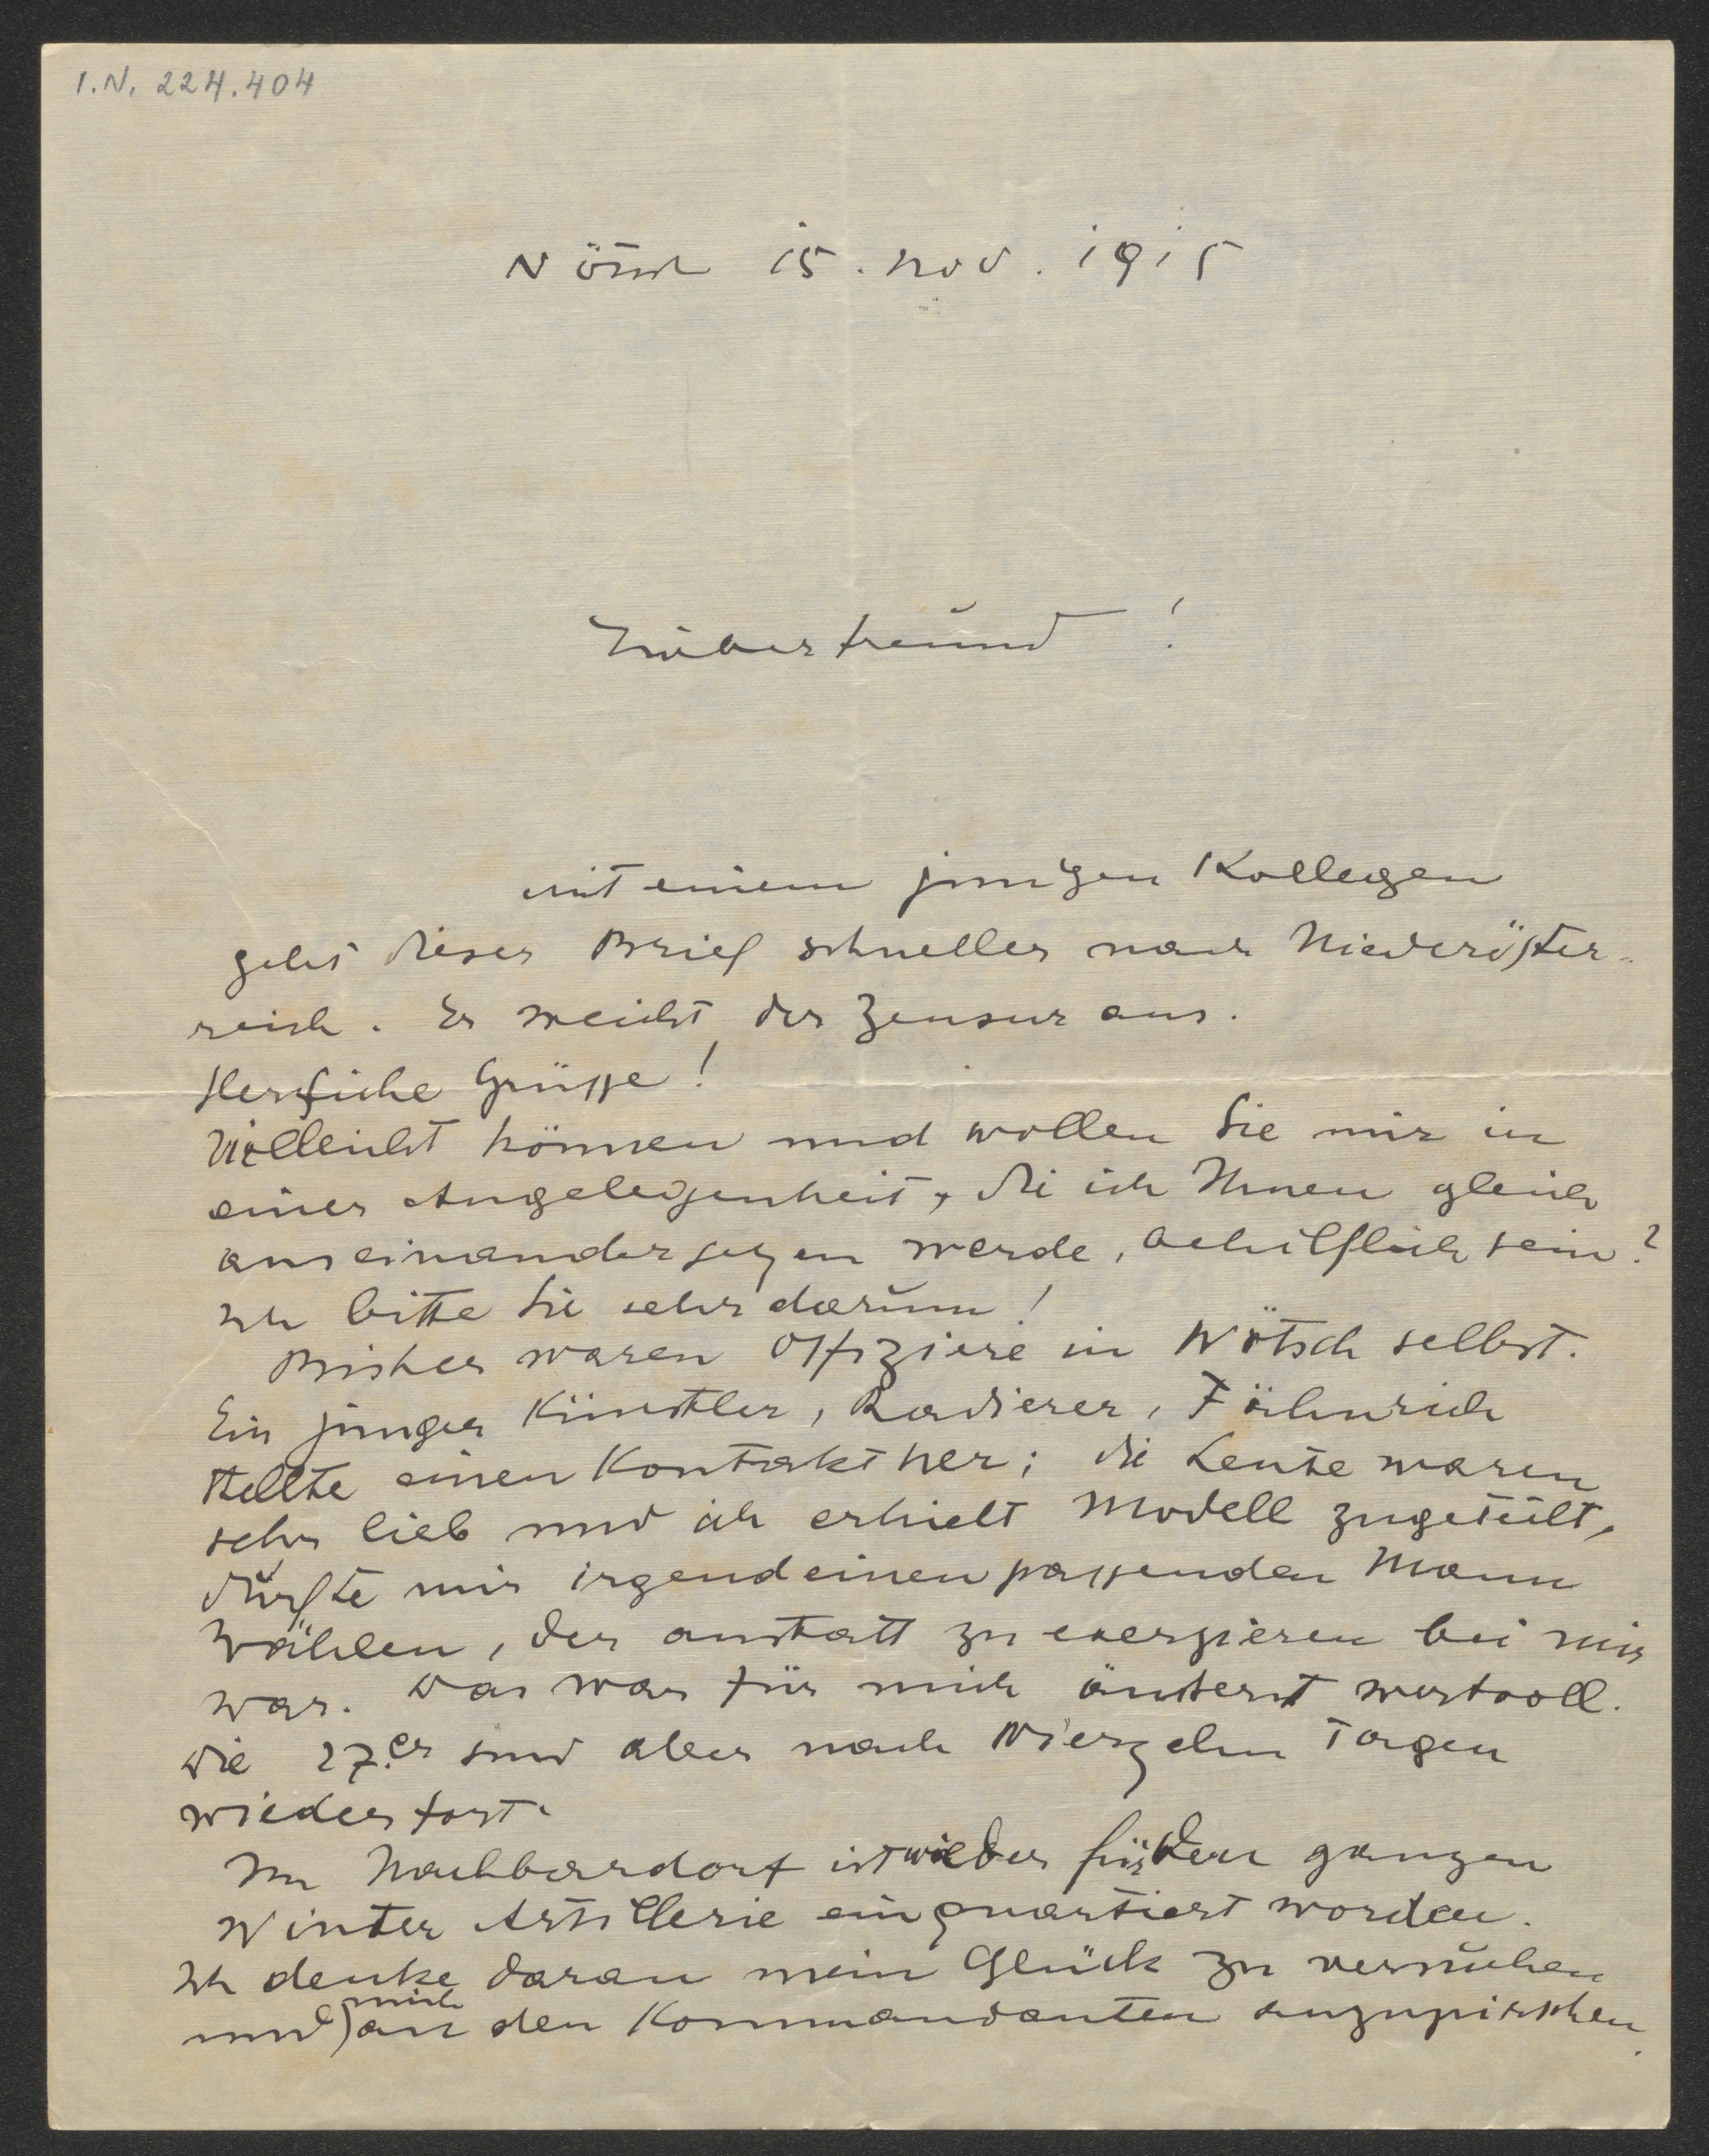 I.N. 224.404
Nötsch 15. Nov. 1915
Lieber Freund!
mit einem jungen Kollegen
geht dieser Brief schneller nach Niederöster-
reich. Er weicht der Zensur aus.
Herzliche Grüsse!
Vielleicht können und wollen Sie mir in
einer Angelegenheit, die ich Ihnen gleich
auseinandersetzen werde, behilflich sein?
Ich bitte Sie sehr darum!
Bisher waren Offiziere in Nötsch selbst.
Ein junger Künstler, Radierer, Fähnrich
stellte einen Kontakt her; die Leute waren
sehr lieb und ich erhielt Modell zugeteilt,
durfte mir irgendeinen passenden Mann
wählen, der anstatt zu exerzieren bei mir
war. Das war für mich äusserst wertvoll.
Die 27.er sind aber nach vierzehn Tagen
wieder fort.
Im Nachbardorf ist wieder für den ganzen
Winter Artillerie einquartiert worden.
Ich denke daran mein Glück zu versuchen
und mich an den Kommandanten anzupirschen.